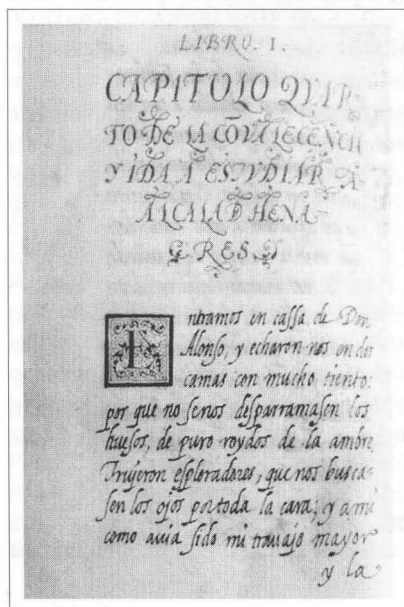 LIBRO. I.
CAPITULO QVAR-
TO DE LA CÕVALECENCIA
Y IDA A ESTVDIAR A
ALCALA D HENA
RES.
Entramos en cassa de Don
Alonso, y echaron nos en dos
camas con mucho tiento:
por que no se nos desparramasen los
huesos, de puro roydos de la ambre
Trujeron esploradores, que nos busca-
sen los ojos por toda la cara; y a mi
como auia sido mi trauajo mayor
y la